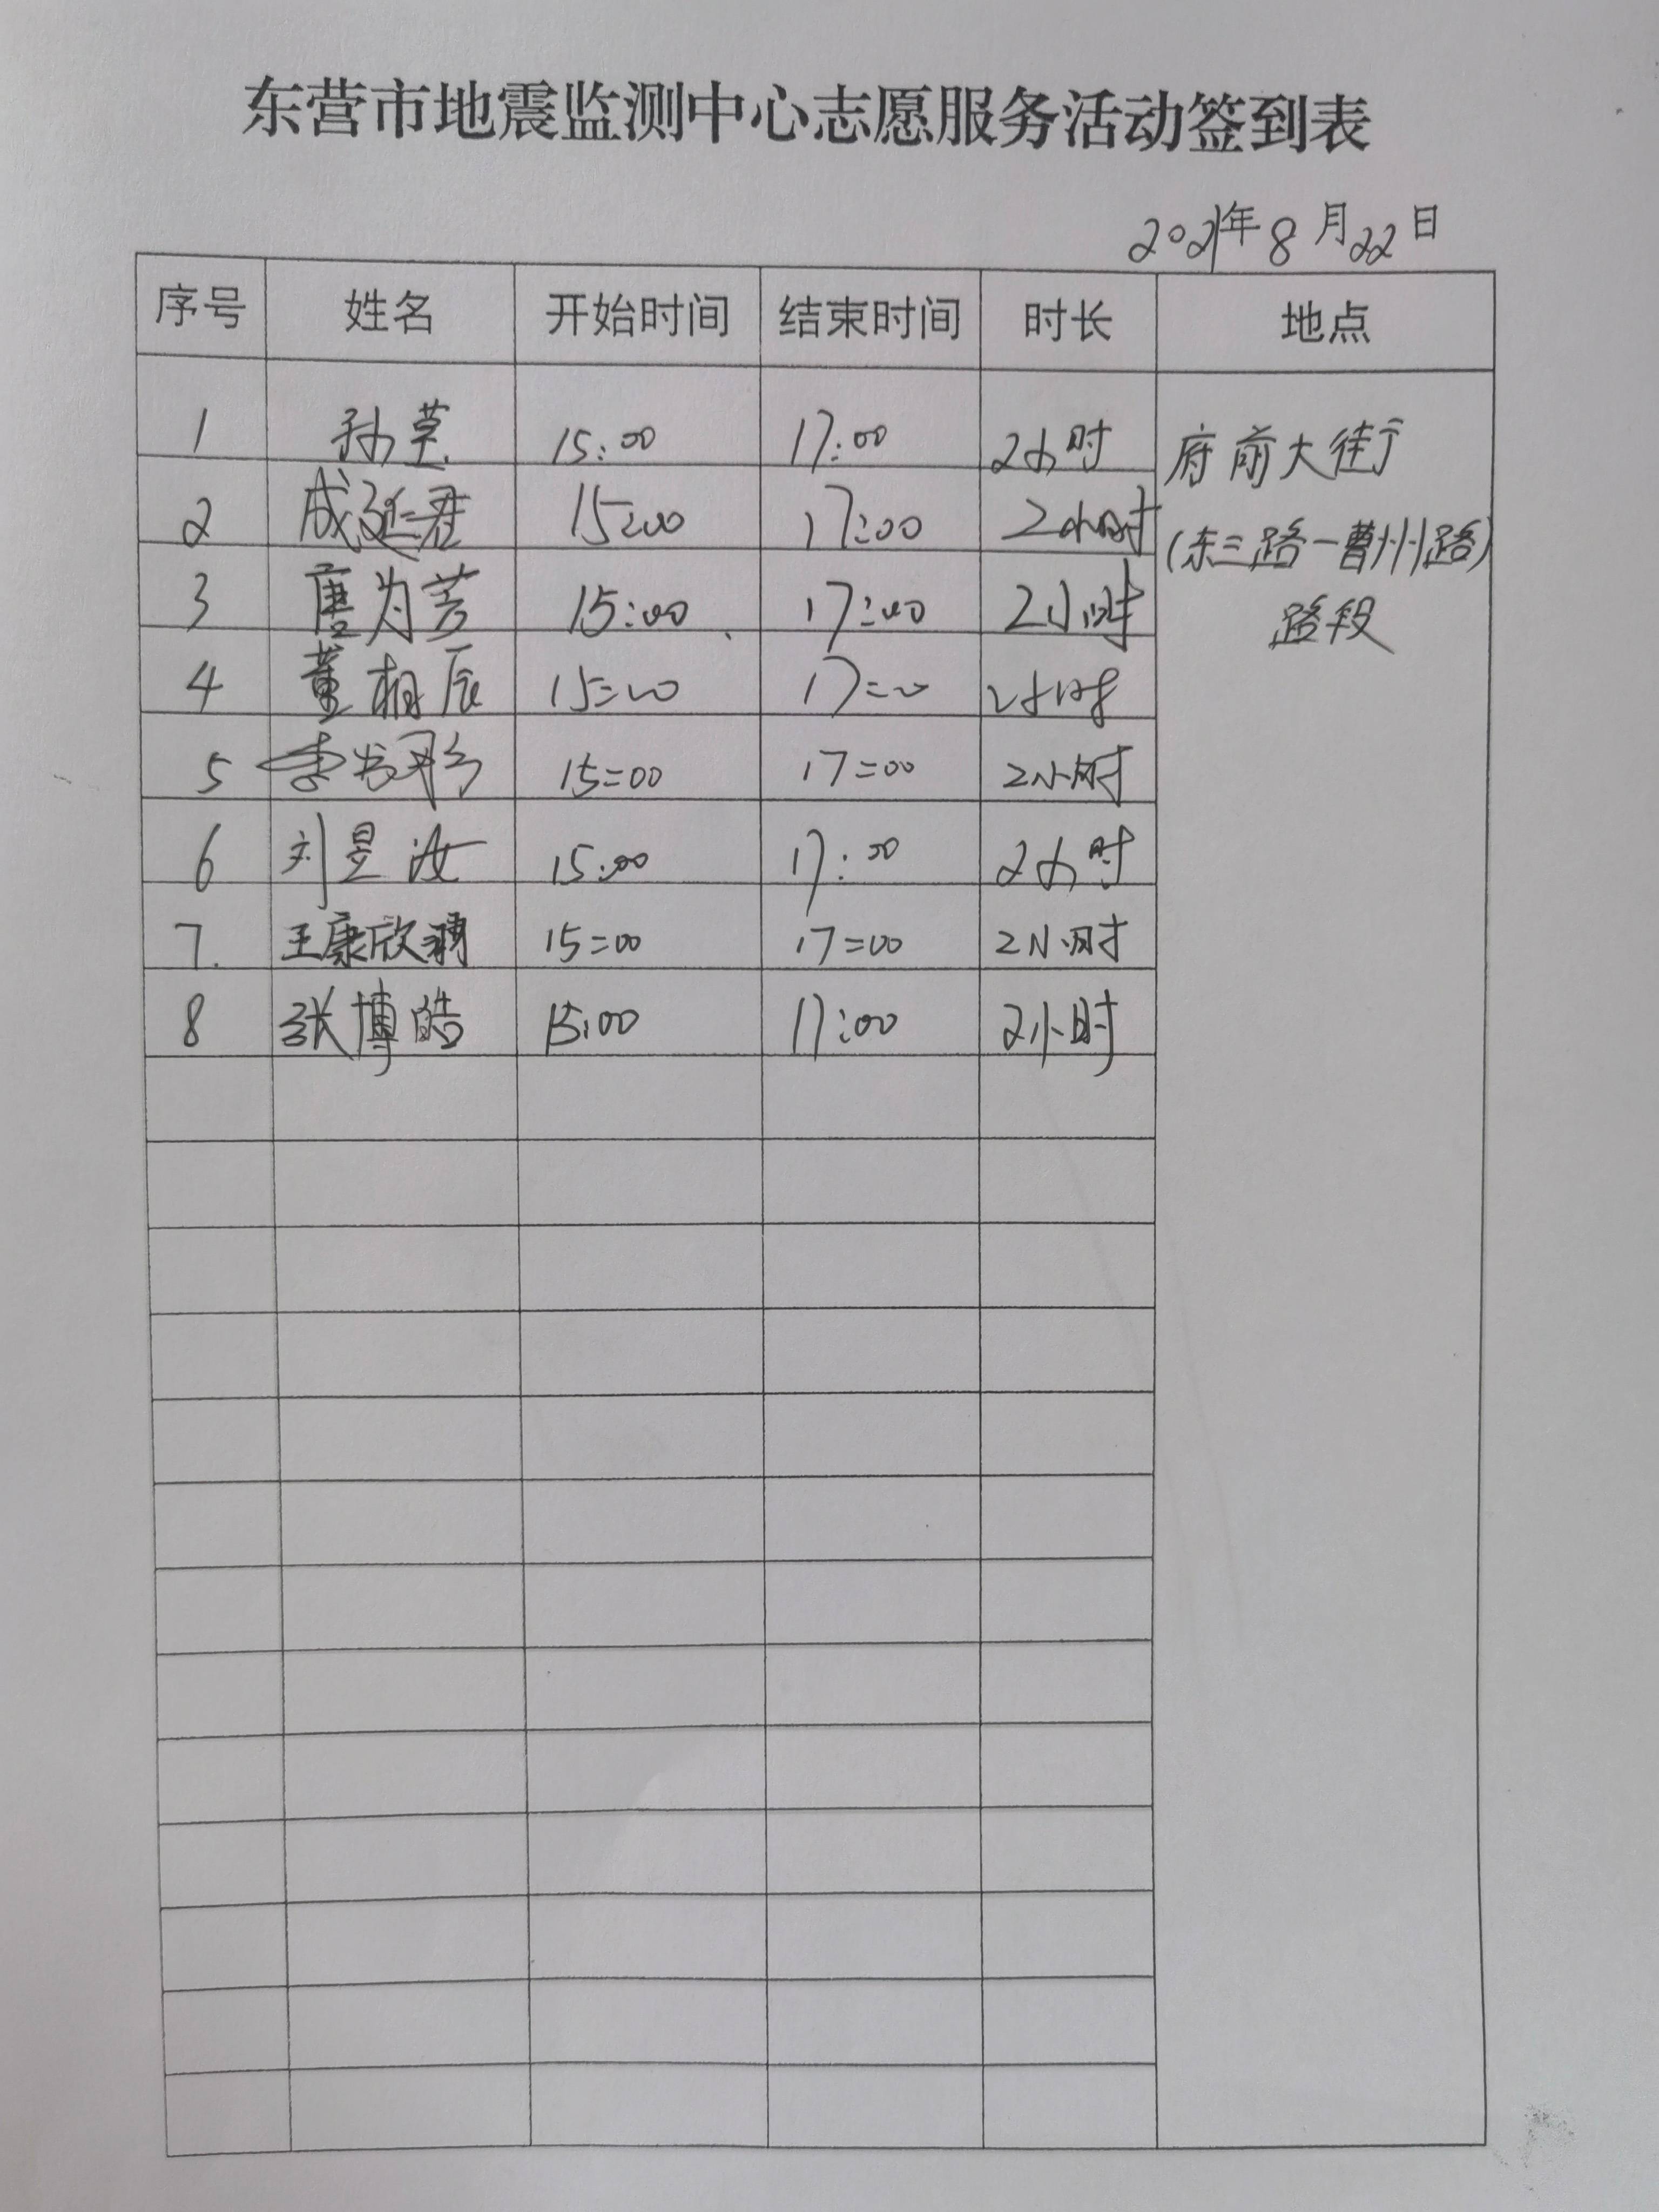 东营市地震监测中心志愿服务活动签到表
2021年8月22日
序号 姓名 开始时间 结束时间 时长 地点
1 孙莹 15:00 17:00 2小时 府前大街
2 成延君 15:00 17:00 2小时 (东三路-曹州路)
3 唐为芳 15:00 17:00 2小时 路段
4 董相辰 15:00 17:00 2小时
5 李 15:00 17:00 2小时
6 刘昱汝 15:00 17:00 2小时
7. 王康欣 15:00 17:00 2小时
8 张博皓 15:00 17:00 2小时